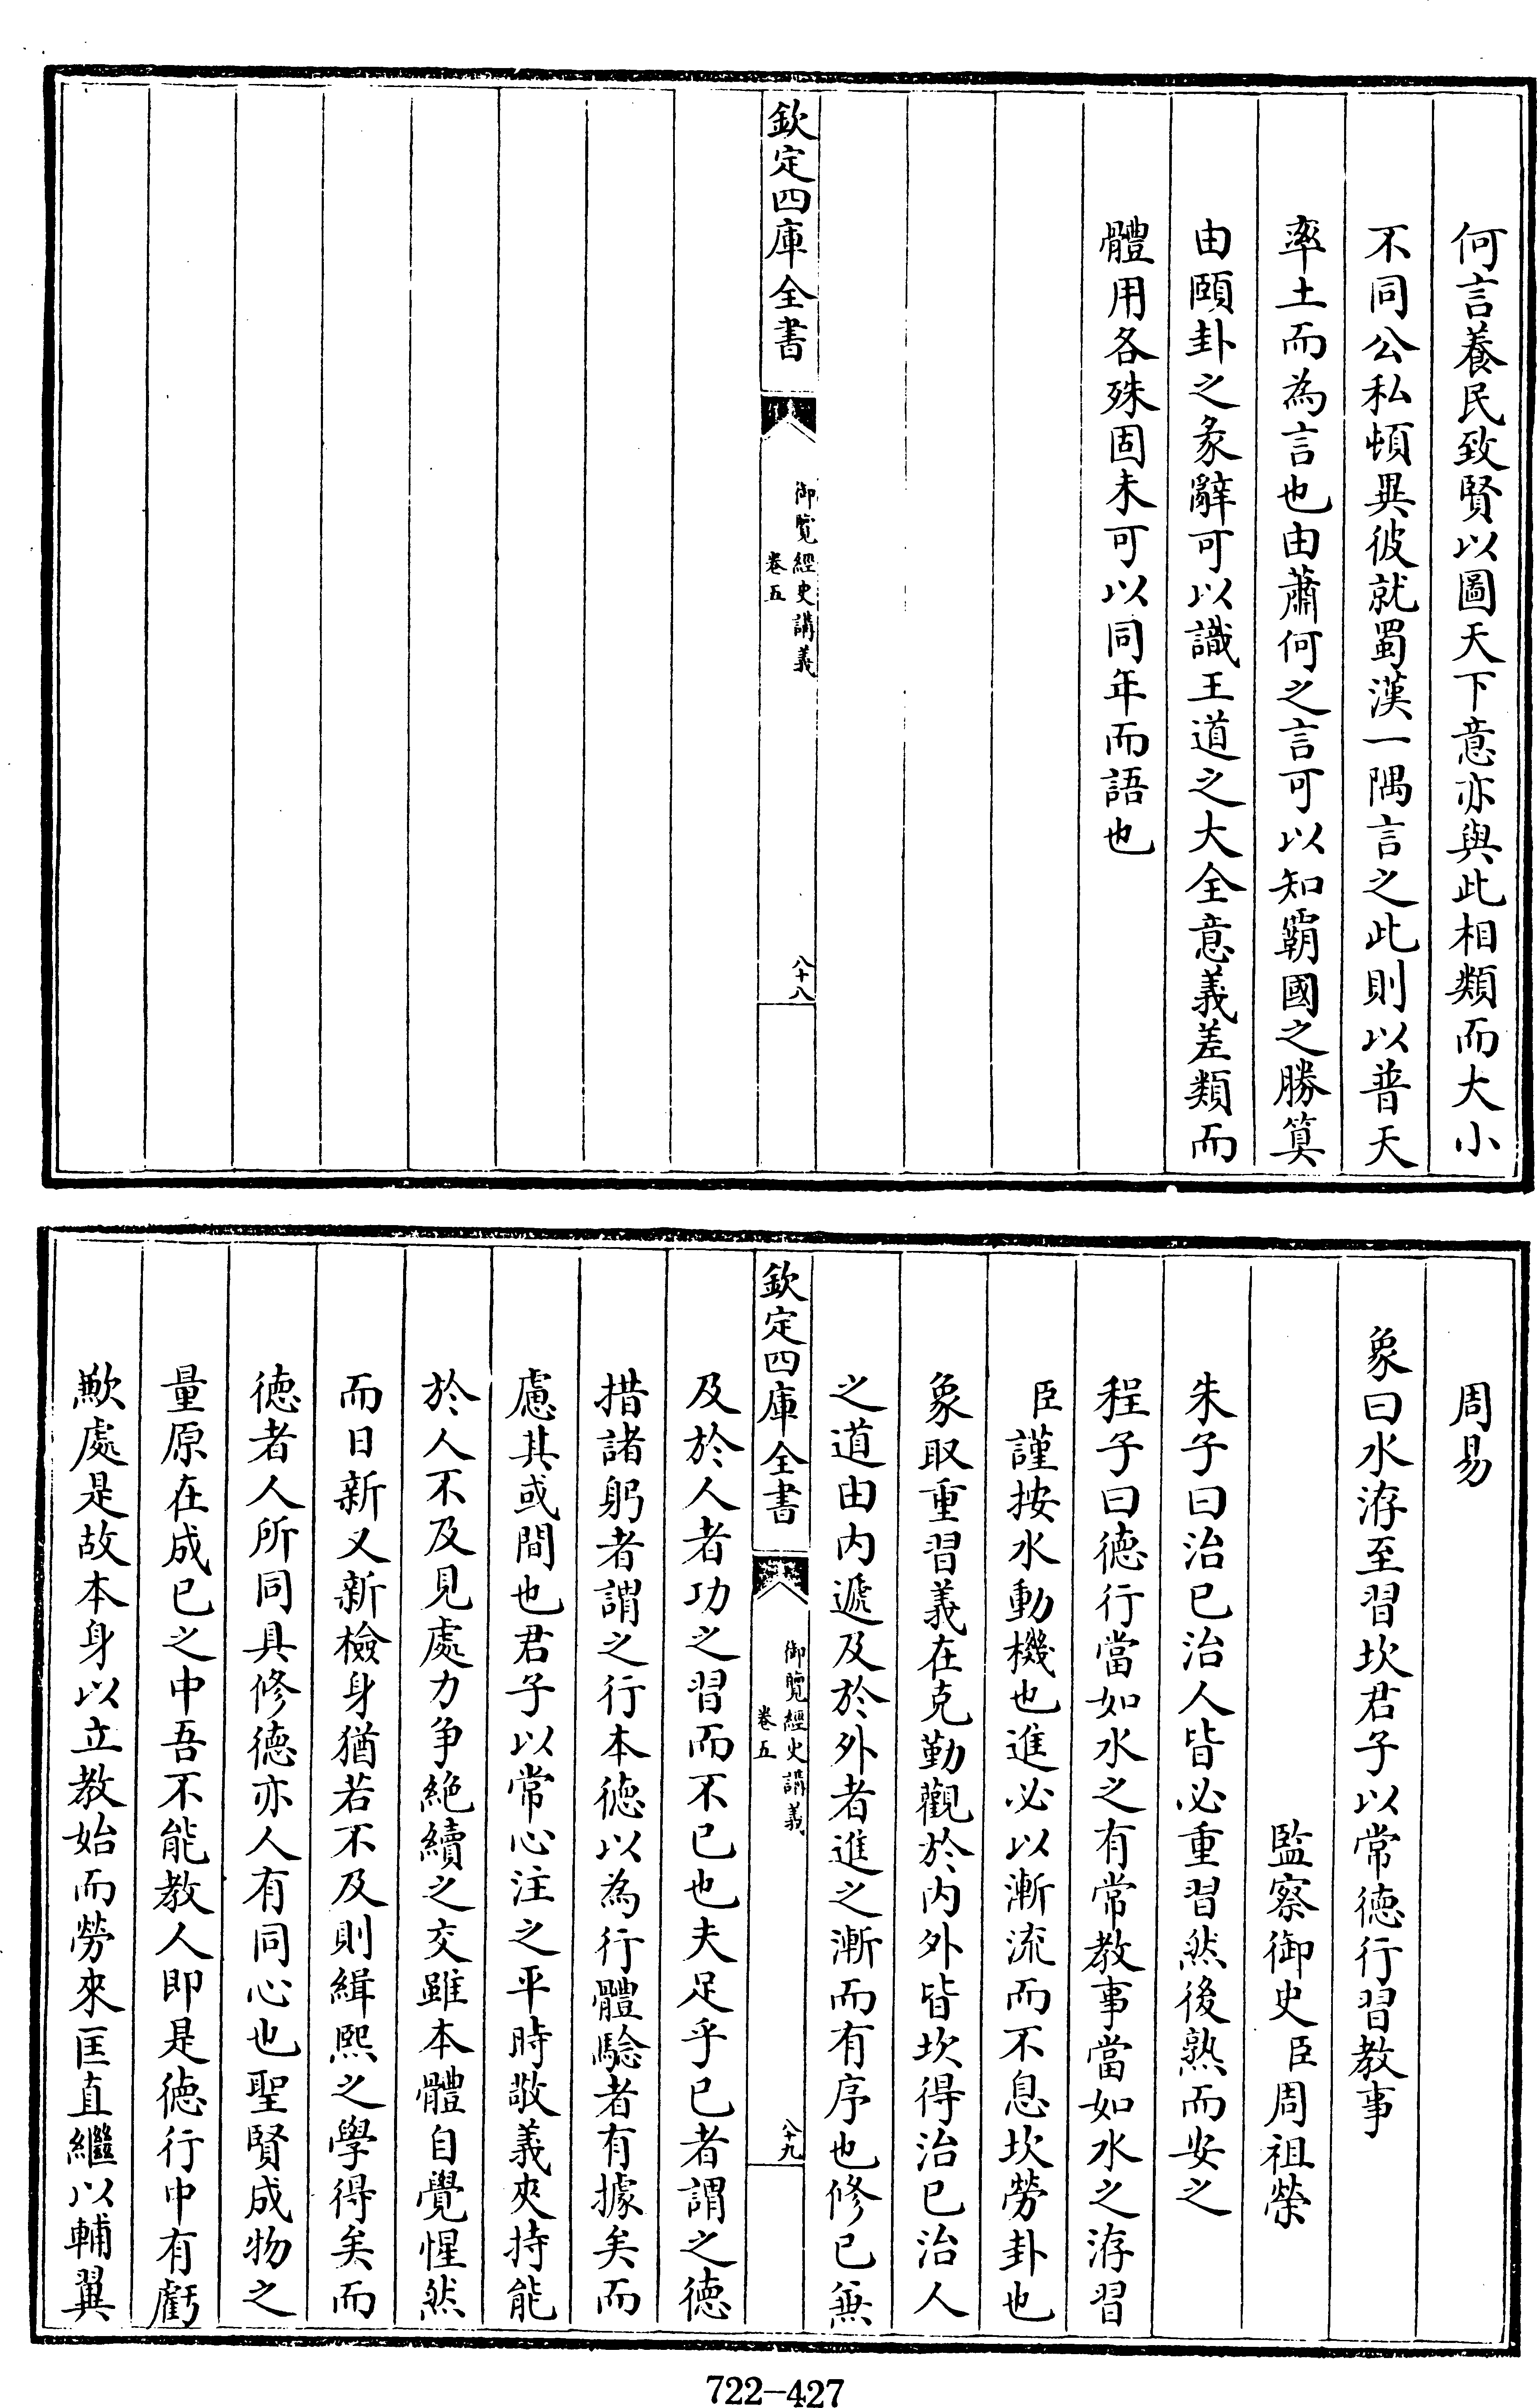 何言養民致賢以圖天下意亦與此相類而大小
不同公私頓異彼就蜀漢一隅言之此則以普天
率土而為言也由蕭何之言可以知霸國之勝筭
由頤卦之彖辭可以識王道之大全意義差類而
體用各殊固未可以同年而語也
欽定四庫全書
御覽經史講義
卷五
八十八
周易
象曰水洊至習坎君子以常徳行習教事
監察御史臣周祖榮
朱子曰治已治人皆必重習然後熟而安之
程子曰徳行當如水之有常教事當如水之洊習
臣謹按水動機也進必以漸流而不息坎勞卦也
象取重習義在克勤觀於内外皆坎得治已治人
之道由内遞及於外者進之漸而有序也修已兼
欽定四庫全書
御覽經史講義
卷五
八十九
及於人者功之習而不已也夫足乎已者謂之徳
措諸躬者謂之行本徳以為行體驗者有據矣而
慮其或間也君子以常心注之平時敬義夾持能
於人不及見處力争絶續之交雖本體自覺惺然
而日新又新檢身猶若不及則緝熙之學得矣而
徳者人所同具修徳亦人有同心也聖賢成物之
量原在成已之中吾不能教人即是徳行中有虧
歉處是故本身以立教始而勞來匡直繼以輔翼
722-427